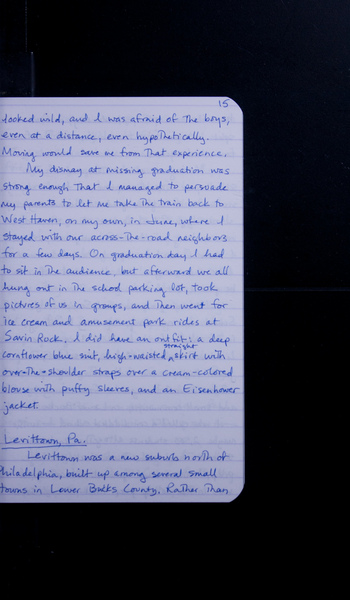 15
looked wild, and I was afraid of the boys,
even at a distance, even hypothetically.
Moving would save me from that experience.
My dismay at missing graduation was
strong enough that I managed to persuade
my parents to let me take the train back to
West Haven, on my own, in June, where I
stayed with our across-the-road neighbors
for a few days. On graduation day I had
to sit in the audience, but afterward we all
hung out in the school parking lot, took
pictures of us in groups, and then went for
ice cream and amusement park rides at
Savin Rock. I did have an outfit: a deep
cornflower blue suit, high-waisted straight skirt with
over-the-shoulder straps over a cream-colored
blouse with puffy sleeves, and an Eisenhower
jacket.
Levittown, Pa.
Levittown was a new suburb north of
Philadelphia, built up among several small
towns in Lower Bucks County. Rather than